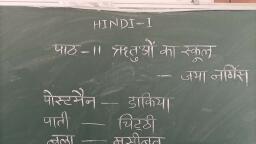 HINDI-I
पाठ-11 ऋतुओं का स्कूल
- जया नर्गिस
पोस्टमैन - डाकिया
पाती - चिट्ठी
बला - मुसीबत